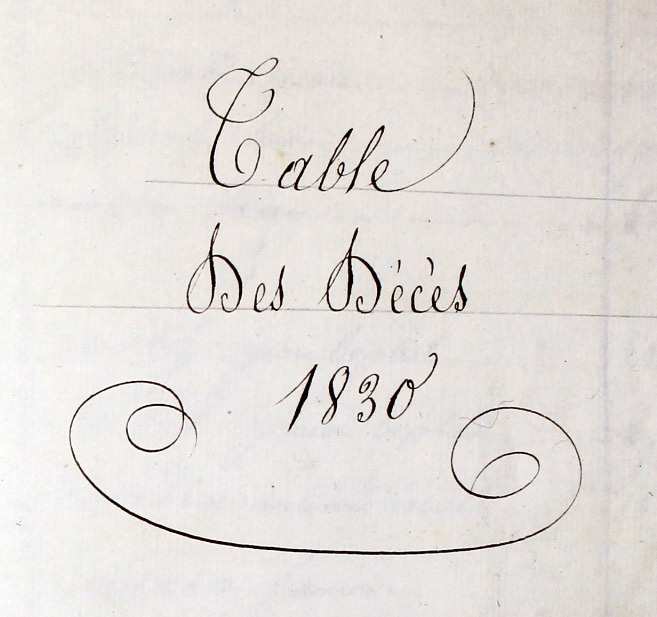 Table
Des Décès
1830